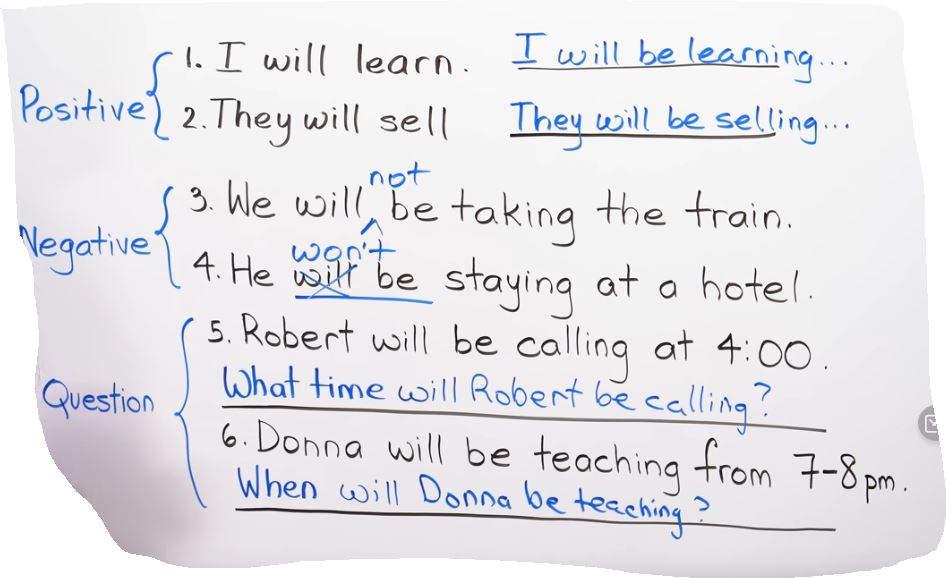 Positive
1. I will learn. I will be learning...
2. They will sell They will be selling...
Negative
not
3. We will be taking the train.
won't
4. He will be staying at a hotel.
Question
5. Robert will be calling at 4:00.
What time will Robert be calling?
6. Donna will be teaching from 7-8pm.
When will Donna be teaching?